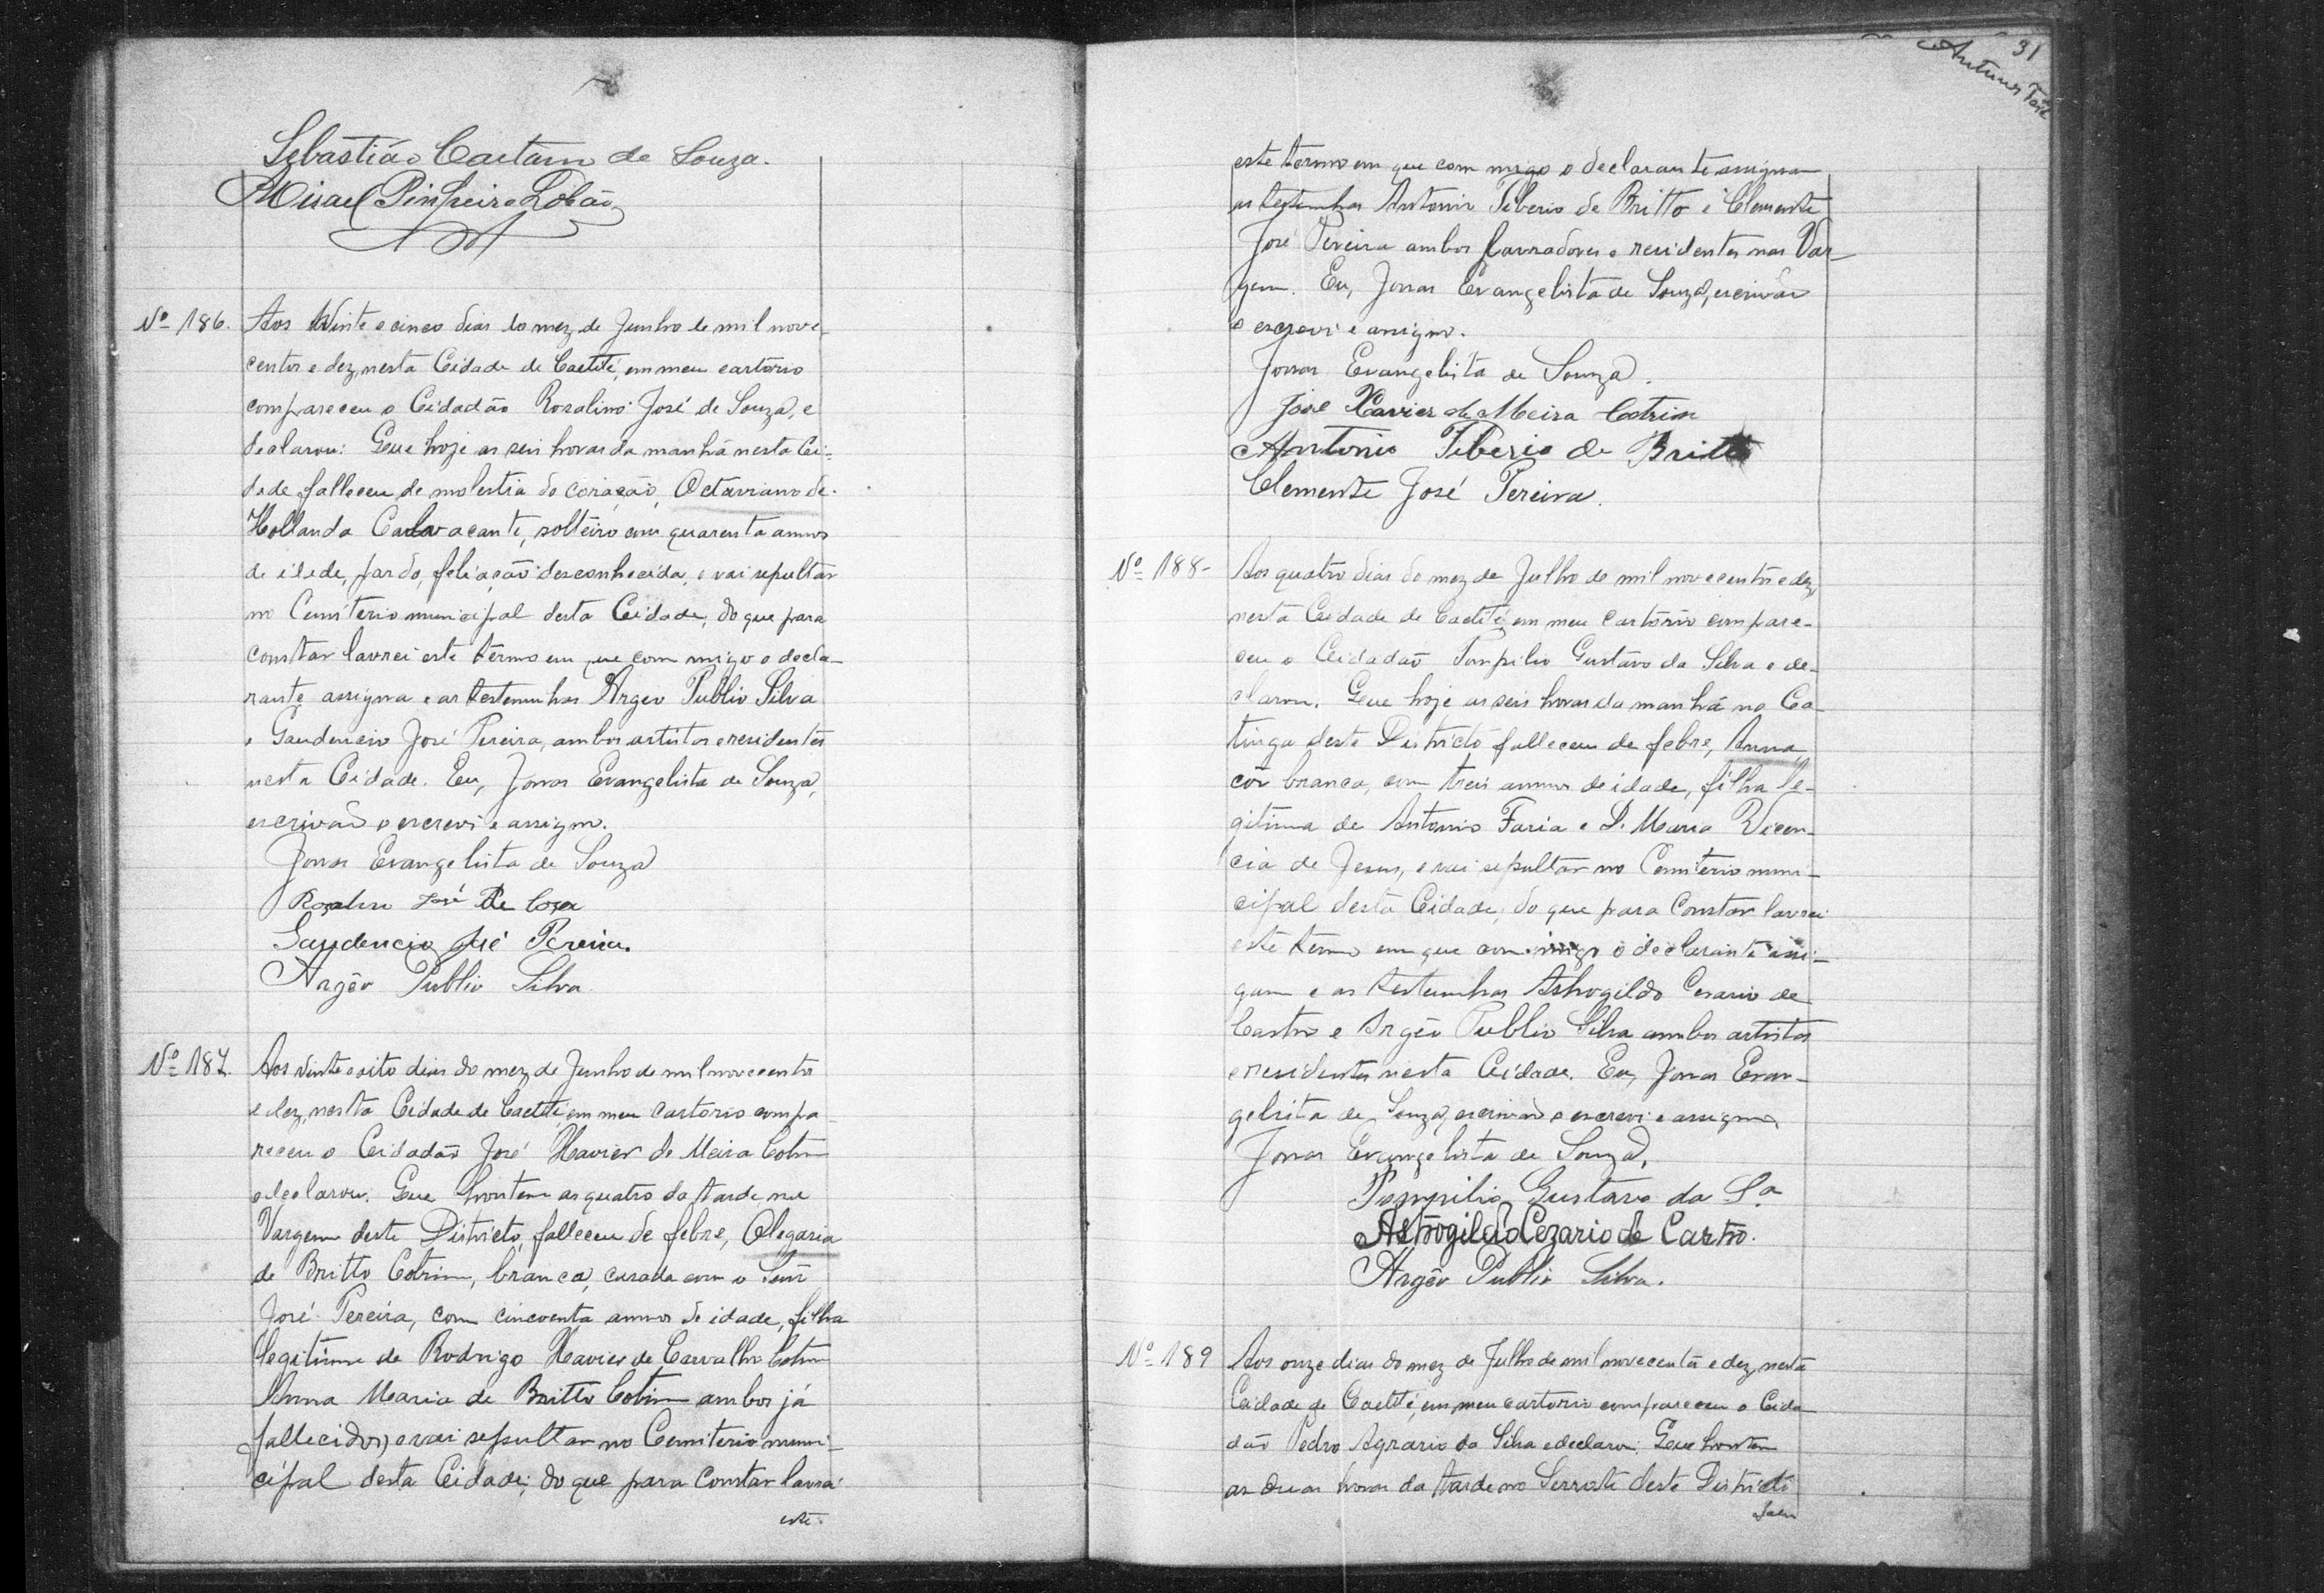 Sebastião Caetano de Souza.
Misael Pinheiro Lobão
Nº 186. Aos Vinte e cinco dias do mez de Junho de mil nove-
centos e dez, nesta Cidade de Caetité, em meu cartorio
compareceu o Cidadão Rosalino José de Souza, e
declarou: Que hoje as seis horas da manhã nesta Ci-
dade falleceu de molestia do coração, Octaviano de
Hollanda Cavalcante, solteiro com quarenta annos
de idade, pardo, feliação desconhecida, e vai sepultar
no Cemiterio municipal desta Cidade, do que para
constar lavrei este têrmo em que com migo o decla-
rante assigna e as testemunhas Argeo Publio Silva
e Gaudencio José Pereira, ambos artistas e residentes
nesta Cidade. Eu, Jonas Evangelista de Souza,
escrivão o escrevi e assigno.
Jonas Evangelista de Souza
José de
Gaudencio José Pereira.
Argêo Publio Silva
Nº 187. Aos vinte e oito dias do mez de Junho de mil novecentos
e dez, nesta Cidade de Caetité, em meu cartorio compa-
receu o Cidadão José Xavier de Meira Cotrim
e declarou: Que hontem as quatro da tarde na
Vargem deste Districto, falleceu de febre, Olegaria
de Britto Cotrim, branca, casada com o Senr
José Pereira, com cincoenta annos de idade, filha
legitima de Rodrigo Xavier de Carvalho Cotrim
Anna Maria de Britto Cotrim ambos já
fallecidos, e vai sepultar no Cemiterio muni-
cipal desta Cidade; do que para constar lavrei
este
31
Antunes
este termo em que com migo o declarante assignam
as testemunhas Antonio Tiberio de Britto e Clemente
José Pereira ambos lavradores e residentes nas Var-
gem. Eu, Jonas Evangelista de Souza, escrivão
o escrevi e assigno.
Jonas Evangelista de Souza.
José Xavier de Meira Cotrim
Antonio Tiberio de Britto
Clemente José Pereira.
Nº 188- Aos quatro dias do mez de Julho de mil novecentos e dez,
nesta Cidade de Caetité, em meu cartorio compare-
ceu o Cidadão Pompilio Gustavo da Silva e de-
clarou. Que hoje as seis horas da manhã na Ca-
tinga deste Districto falleceu de febre, Anna
côr branca, com treis annos de idade, filha le-
gitima de Antonio Faria e D. Maria Vicen-
cia de Jesus, e vai sepultar no Cemiterio muni-
cipal desta Cidade; do que para constar lavrei
este termo em que commigo o declarante assi-
gnam e as testemunhas Astrogildo Cesario de
Castro e Argêo Publio Silva ambos artistas
e residentes nesta Cidade. Eu, Jonas Evan-
gelista de Souza, escrivão o escrevi e assigno.
Jonas Evangelista de Souza,
Pompilio Gustavo da Sa.
Astrogildo Cezario de Castro.
Argêo Publio Silva.
Nº 189 Aos onze dias do mez de Julho de mil novecentos e dez, nesta
Cidade de Caetité, em meu cartorio compareceu o Cida-
dão Pedro Agrario da Silva e declarou: Que hontem
as duas horas da tarde no Serrote deste Districto